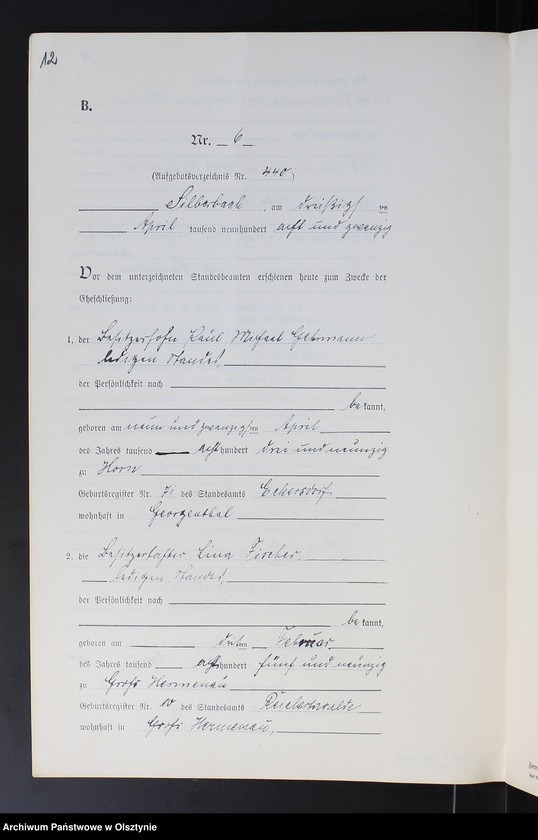 12
B.
Nr. 6
(Aufgebotsverzeichnis Nr. 440)
Silberbach, am dreißigsten
April tausend neunhundert acht und zwanzig
Vor dem unterzeichneten Standesbeamten erschienen heute zum Zwecke der
Eheschließung:
1. der Besitzersohn Paul Michael Gehrmann
ledigen Standes,
der Persönlichkeit nach
bekannt,
geboren am neun und zwanzigsten April
des Jahres tausend achthundert drei und neunzig
zu Horn
Geburtsregister Nr. des Standesamts Eckersdorf
wohnhaft in Georgenthal
2. die Besitzertochter Lina Fischer,
ledigen Standes,
der Persönlichkeit nach
bekannt,
geboren am dritten Februar
des Jahres tausend achthundert fünf und neunzig
zu Groß Hermenau
Geburtsregister Nr. 10 des Standesamts Reichertswalde
wohnhaft in Groß Hermenau,
Archiwum Państwowe w Olsztynie